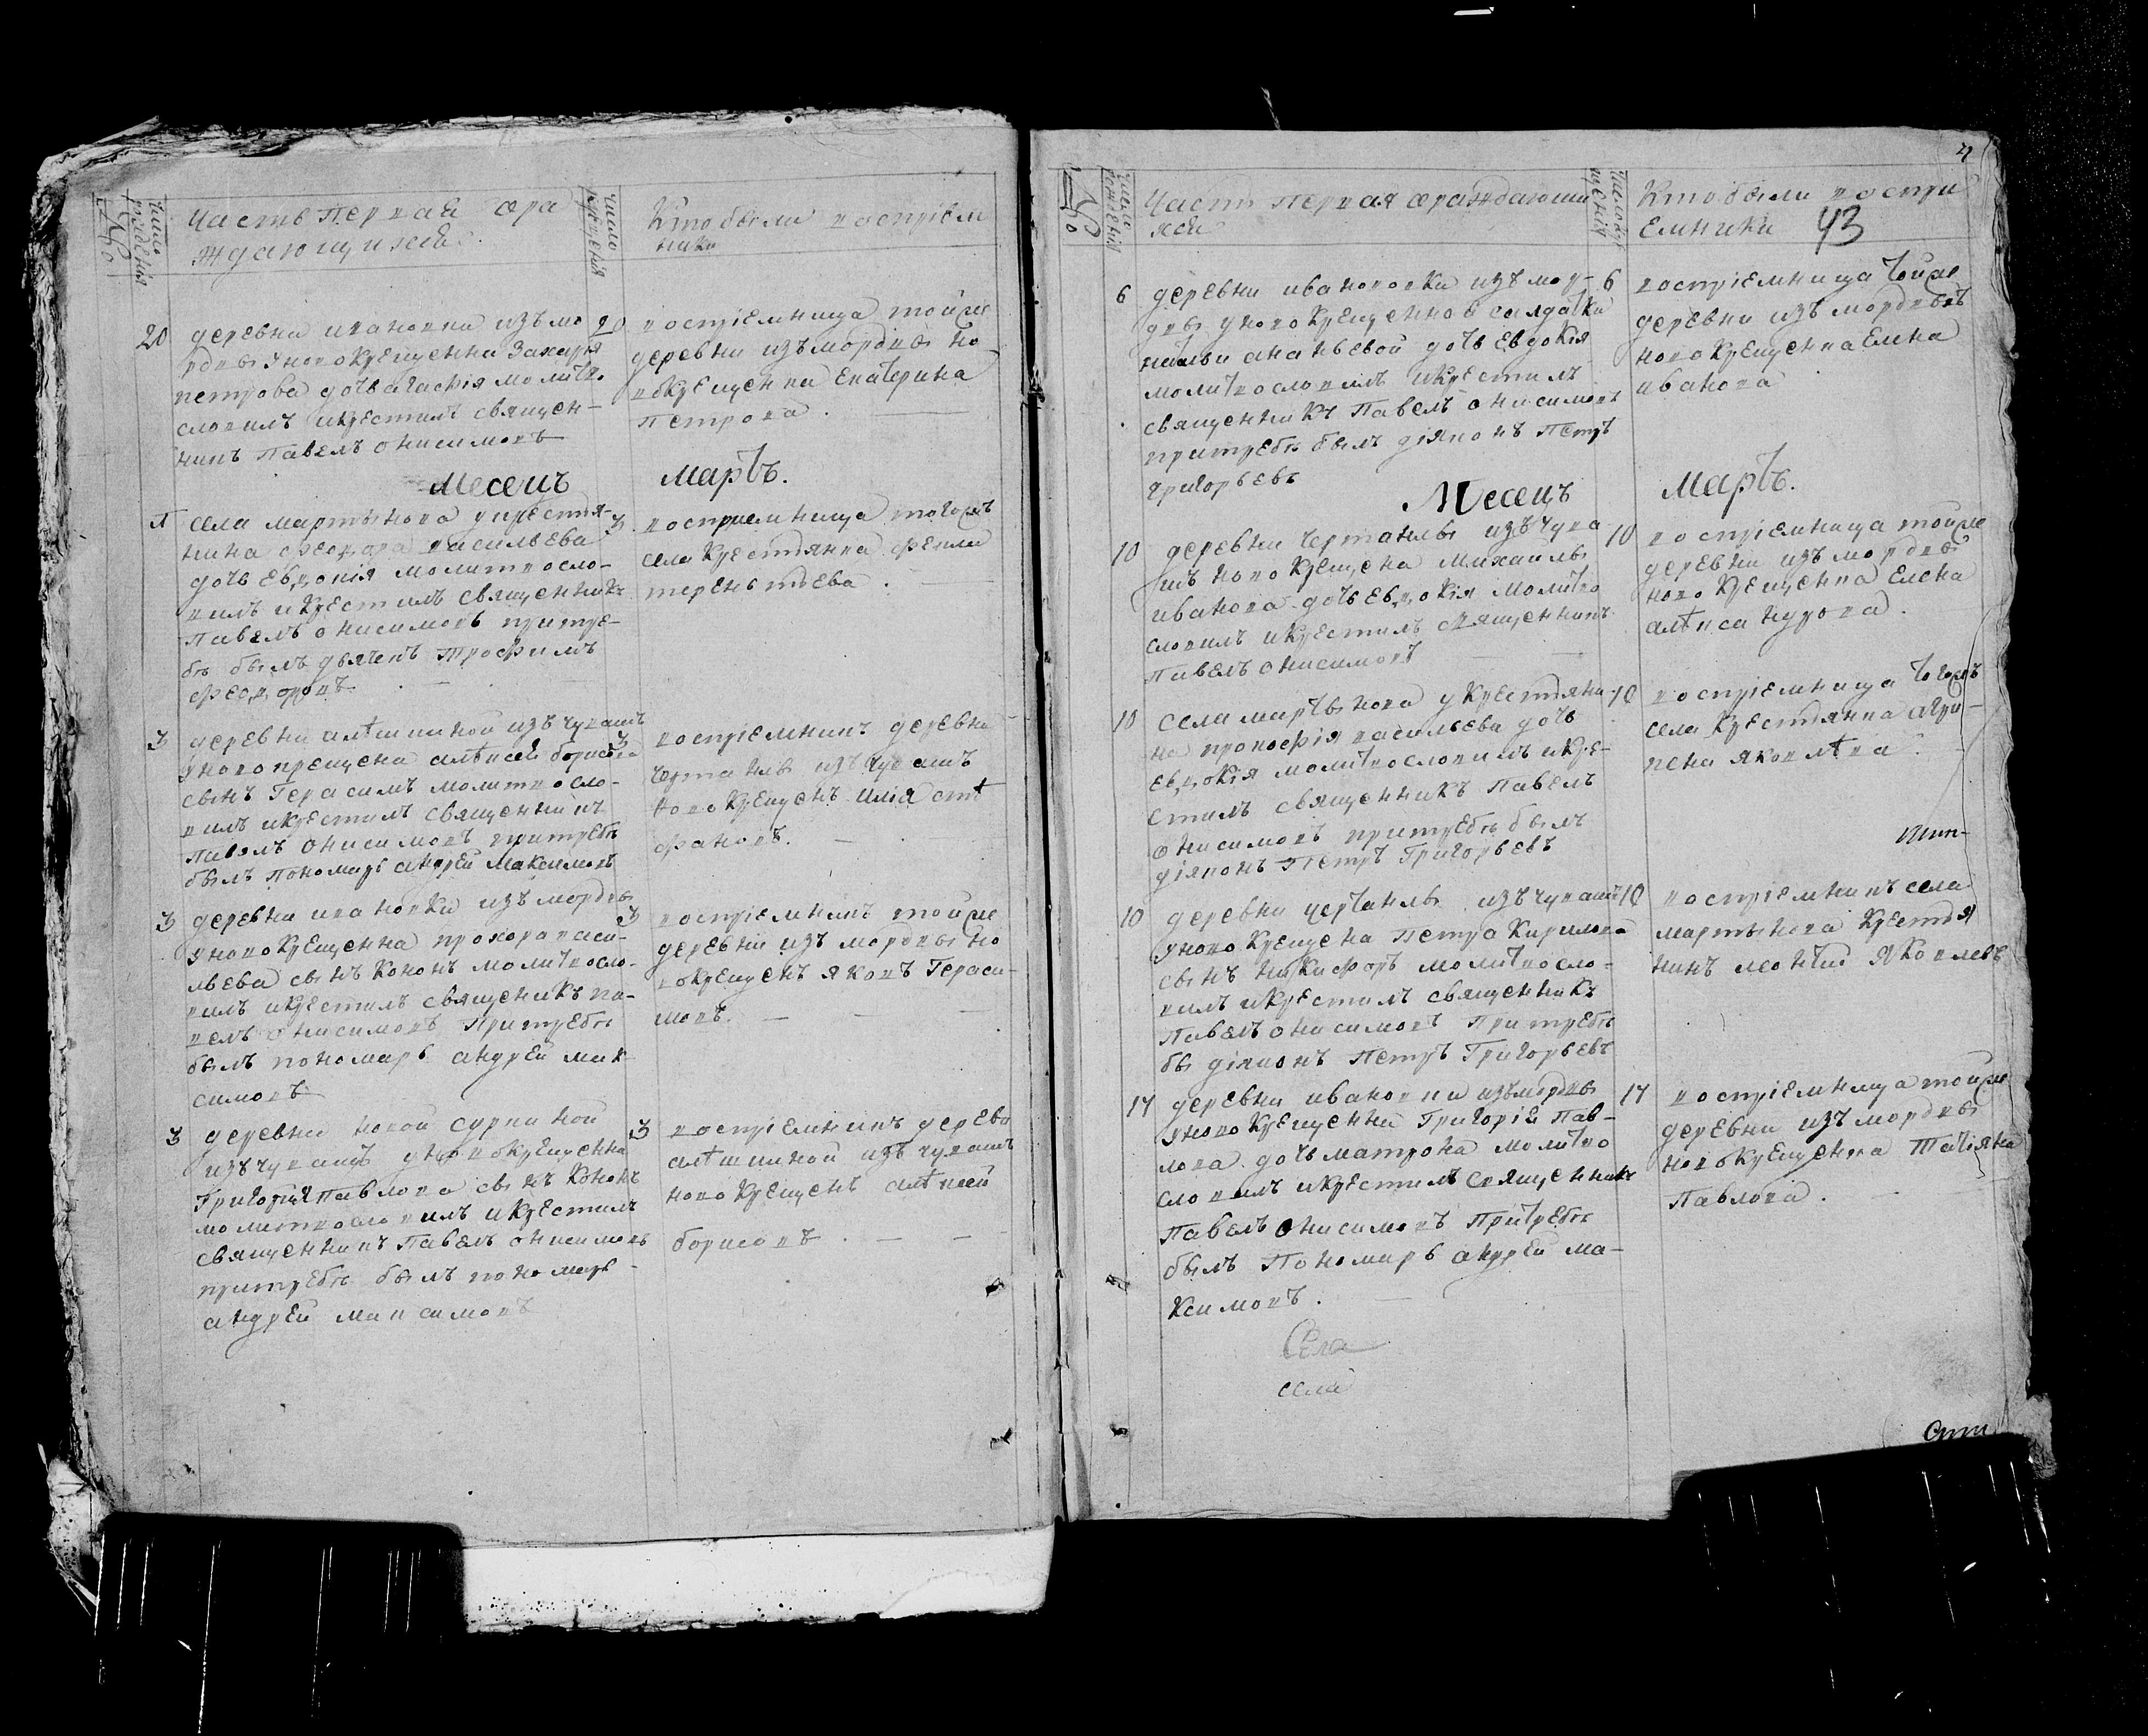 №
число рожденiя
Часть Первая ора
ждающихся
число крещенiя
Кто были восприем
ники
20 деревни ивановки изъмо
рдвы уновокрещенна Захара
петрова дочь агафiя молитво
словилъ икрестилъ священ-
никъ Павелъ онисимовъ
20 восприемница тойже
деревни изъмордвы но
вокрещенка Екатерина
Петрова.
Месецъ Мартъ.
1 села мартынова укрестья-
нина феодора васильева
дочь евдокiя молитвосло-
вилъ икрестилъ священникъ
Павелъ онисимовъ притре-
бѣ былъ дьячекъ Трофимъ
феодоровъ.
3 восприемница тогожъ
села крестянка фекла
терентьева.
3 деревни алѣшкиной изъчувашъ
уновокрещена алѣксей борисова
сынъ Герасимъ молитвосло-
вилъ икрестилъ священникъ
Павелъ онисимовъ притребѣ
былъ пономарь андрей Максимовъ
3 восприемникъ деревни
чертанлы изъ чувашъ
новокрещенъ илiя стѣ
фановъ.
3 деревни ивановки изъ мордвы
уновокрещенна прохора васи-
льева сынъ Кононъ молитвосло-
вилъ икрестилъ священикъ па-
велъ онисимовъ Притребѣ
былъ пономарь андрей мак
симовъ
3 восприемникъ тойже
деревни изъ мордвы но
вокрещенъ яковъ Гераси-
мовъ.
3 деревни новой суркиной
изъчувашъ уновокрещенна
Григорiя Павлова сынъ Кононъ
молитвословилъ икрестилъ
священникъ Павелъ онисимовъ
притребѣ былъ пономарь
андрей максимовъ
3 восприемникъ деревни
алѣшкиной изъ чувашъ
новокрещенъ алѣксей
борисовъ.
4
№
число рожденiя
Часть первая ораждающи
хся
число крещенiя
Кто были воспри
емники 43
6 деревни ивановки изъмор-
двы уновокрещенной салдатки
ананьевой дочь евдокiя
молитвословилъ икрестилъ
священникъ Павелъ онисимовъ
притребѣ былъ дiяконъ Петръ
григорьевъ
6 восприемница тойже
деревни изъ мордвы
новокрещенка Елена
иванова
Месецъ Мартъ.
10 деревни чертанлы изъчува
шъ новокрещена Михаилы
иванова дочь евдокiя молитво
словилъ икрестилъ священникъ
Павелъ онисимовъ
10 восприемница тойже
деревни изъ мордвы
новокрещенка Елена
алѣксандрова.
10 села мартынова укрестяни-
на прокофiя васильева дочь
евдокiя молитвословилъ икре-
стилъ священникъ Павелъ
онисимовъ притребѣ былъ
дiяконъ Петръ Григорьевъ
10 восприемница тогожъ
села крестянка агри-
пена яковлѣва
10 деревни чертанлы изъчувашъ
уновокрещена Петра Кирилова
сынъ никифоръ молитвосло-
вилъ икрестилъ священникъ
Павелъ онисимовъ Притребѣ
бы дiяконъ Петръ Григорьевъ
10 восприемникъ села
мартынова крестя
нинъ леонтiй Яковлевъ
17 деревни ивановки изъмордвы
уновокрещенна Григорiя Пав-
лова дочь матрона молитво
словилъ икрестилъ священникъ
Павелъ онисимовъ Притребѣ
былъ Пономарь андрей ма-
ксимовъ.
17 восприемница тойже
деревни изъ мордвы
новокрещенка Татiяна
Павлова.
Села
села